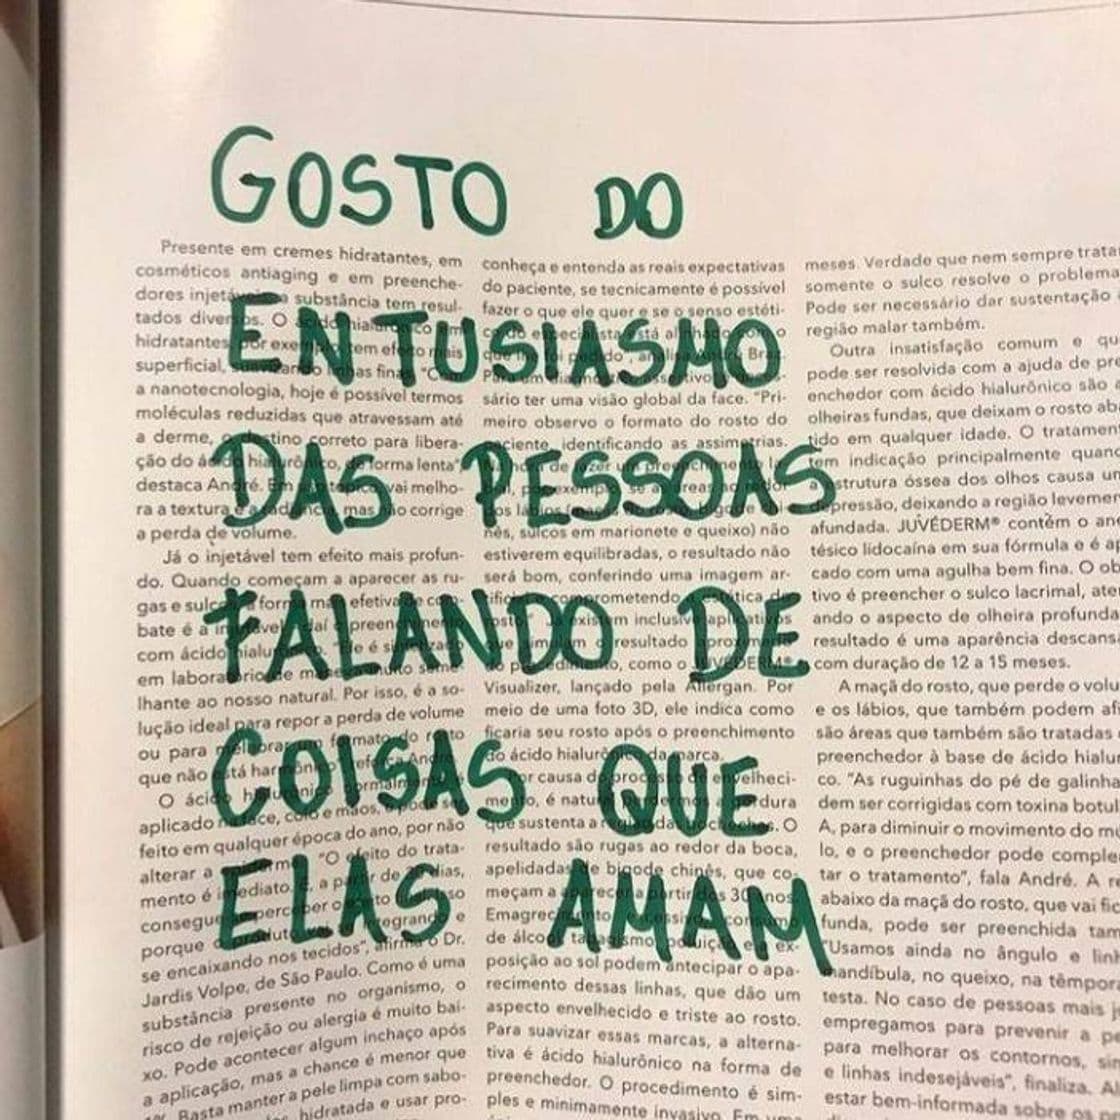 GOSTO DO
ENTUSIASMO
DAS PESSOAS
FALANDO DE
COISAS QUE
ELAS AMAM
Presente em cremes hidratantes, em
cosméticos antiaging e em preenche-
dores a substância tem resul-
tados
hidratantes,
superficial,
a nanotecnologia, hoje é possível termos
moléculas reduzidas que atravessam até
a derme, correto para libera-
ção do forma lenta",
destaca André. vai melho-
ra a textura mas não corrige
a perda de volume.
Já o injetável tem efeito mais profun-
do. Quando começam a aparecer as ru-
gas e
bate é a
com ácido
em
lhante ao nosso natural. Por isso, é a so-
lução ideal para repor a perda de volume
ou para
que não está
O
aplicado face, colo e mãos,
feito em qualquer época do ano, por não
alterar a "O efeito do trata-
mento é imediato.
consegue perceber o
porque
se encaixando nos tecidos", afirma o Dr.
Jardis Volpe, de São Paulo. Como é uma
substância presente no organismo, o
risco de rejeição ou alergia é muito bai-
xo. Pode acontecer algum inchaço após
a aplicação, mas a chance é menor que
Basta manter a pele limpa com sabo-
hidratada e usar pro-
conheça e entenda as reais expectativas
do paciente, se tecnicamente é possível
fazer o que ele quer e se o senso estéti-
sário ter uma visão global da face. "Pri-
meiro observo o formato do rosto do
paciente, identificando as assimetrias.
nês, sulcos em marionete e queixo) não
estiverem equilibradas, o resultado não
será bom, conferindo uma imagem ar-
resultado
como o JUVÉDERM®
Visualizer, lançado pela Allergan. Por
meio de uma foto 3D, ele indica como
ficaria seu rosto após o preenchimento
do ácido hialurônico da marca.
Por causa do processo de envelheci-
mento, é
que sustenta a O
resultado são rugas ao redor da boca,
apelidadas de bigode chinês, que co-
meçam a aparecer a partir dos 30 anos.
de álcool, tabagismo, poluição e a ex-
posição ao sol podem antecipar o apa-
recimento dessas linhas, que dão um
aspecto envelhecido e triste ao rosto.
Para suavizar essas marcas, a alterna-
tiva é ácido hialurônico na forma de
preenchedor. O procedimento é sim-
ples e minimamente invasivo. Em
meses. Verdade que nem sempre trata
somente o sulco resolve o problema
Pode ser necessário dar sustentação
região malar também.
Outra insatisfação comum e qu
pode ser resolvida com a ajuda de pre
enchedor com ácido hialurônico são
olheiras fundas, que deixam o rosto aba
tido em qualquer idade. O tratamen
tem indicação principalmente quand
a estrutura óssea dos olhos causa um
depressão, deixando a região levemen
afundada. JUVÉDERM® contém o ane
tésico lidocaína em sua fórmula e é ap
cado com uma agulha bem fina. O ob
tivo é preencher o sulco lacrimal, ate
ando o aspecto de olheira profunda
resultado é uma aparência descans
com duração de 12 a 15 meses.
A maçã do rosto, que perde o volu
e os lábios, que também podem afi
são áreas que também são tratadas
preenchedor à base de ácido hialu
co. "As ruguinhas do pé de galinha
dem ser corrigidas com toxina botul
A, para diminuir o movimento do m
lo, e o preenchedor pode comple
tar o tratamento", fala André. A re
abaixo da maçã do rosto, que vai fic
funda, pode ser preenchida tam
"Usamos ainda no ângulo e linh
mandíbula, no queixo, na têmpora
testa. No caso de pessoas mais j
empregamos para prevenir a pe
para melhorar os contornos,
e linhas indesejáveis", finaliza. A
estar bem-informada sobre os